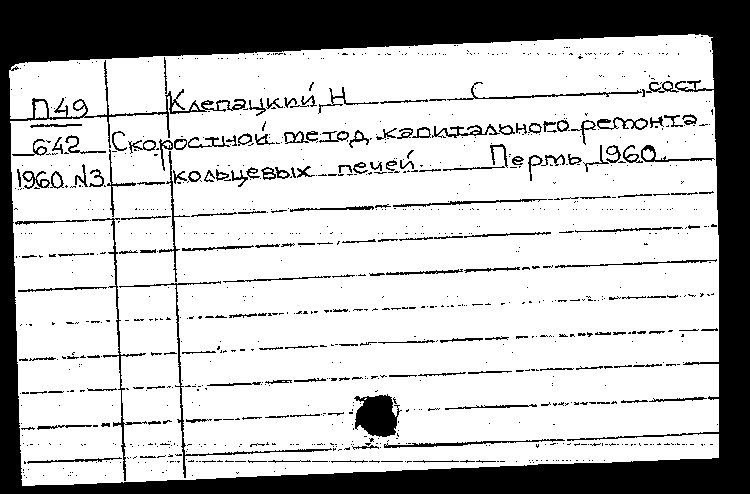 П49 Клепацкий, Н С , сост.
642 Скоростной метод капитального ремонта
1960 N3 кольцевых печей. Пермь, 1960.